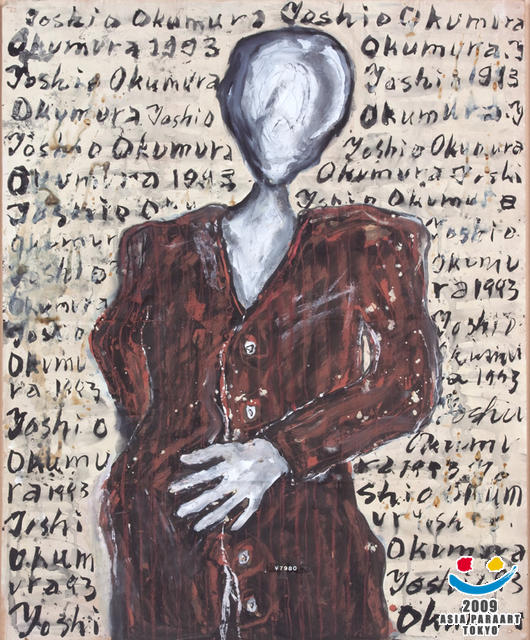 Yoshio Okumura Yoshio Okumura
Okumura 1993 Okumura.Y
Yoshio Okumura Yoshio 1993
Okumura Yoshio Okumura.Y
Yoshio Okumura Yoshio Okumura
Okumura 1993 Okumura Yoshi
Yoshio Oku Yoshio Okumura
Okumura Yoshio
Yoshio Okumu
Okumura ra 1993
Yoshio Yoshio
Okumu Okumu
ra 1993 a 1993
Yoshio Yoshi
Okumu Okumu
ra 1993 ra 1993 Yo
Yoshi shio Okum
okum ur Yoshi
ura 93 Okumura
Yoshi Yoshi 93
Oku
¥7980
2009
ASIA PARAART
TOKYO